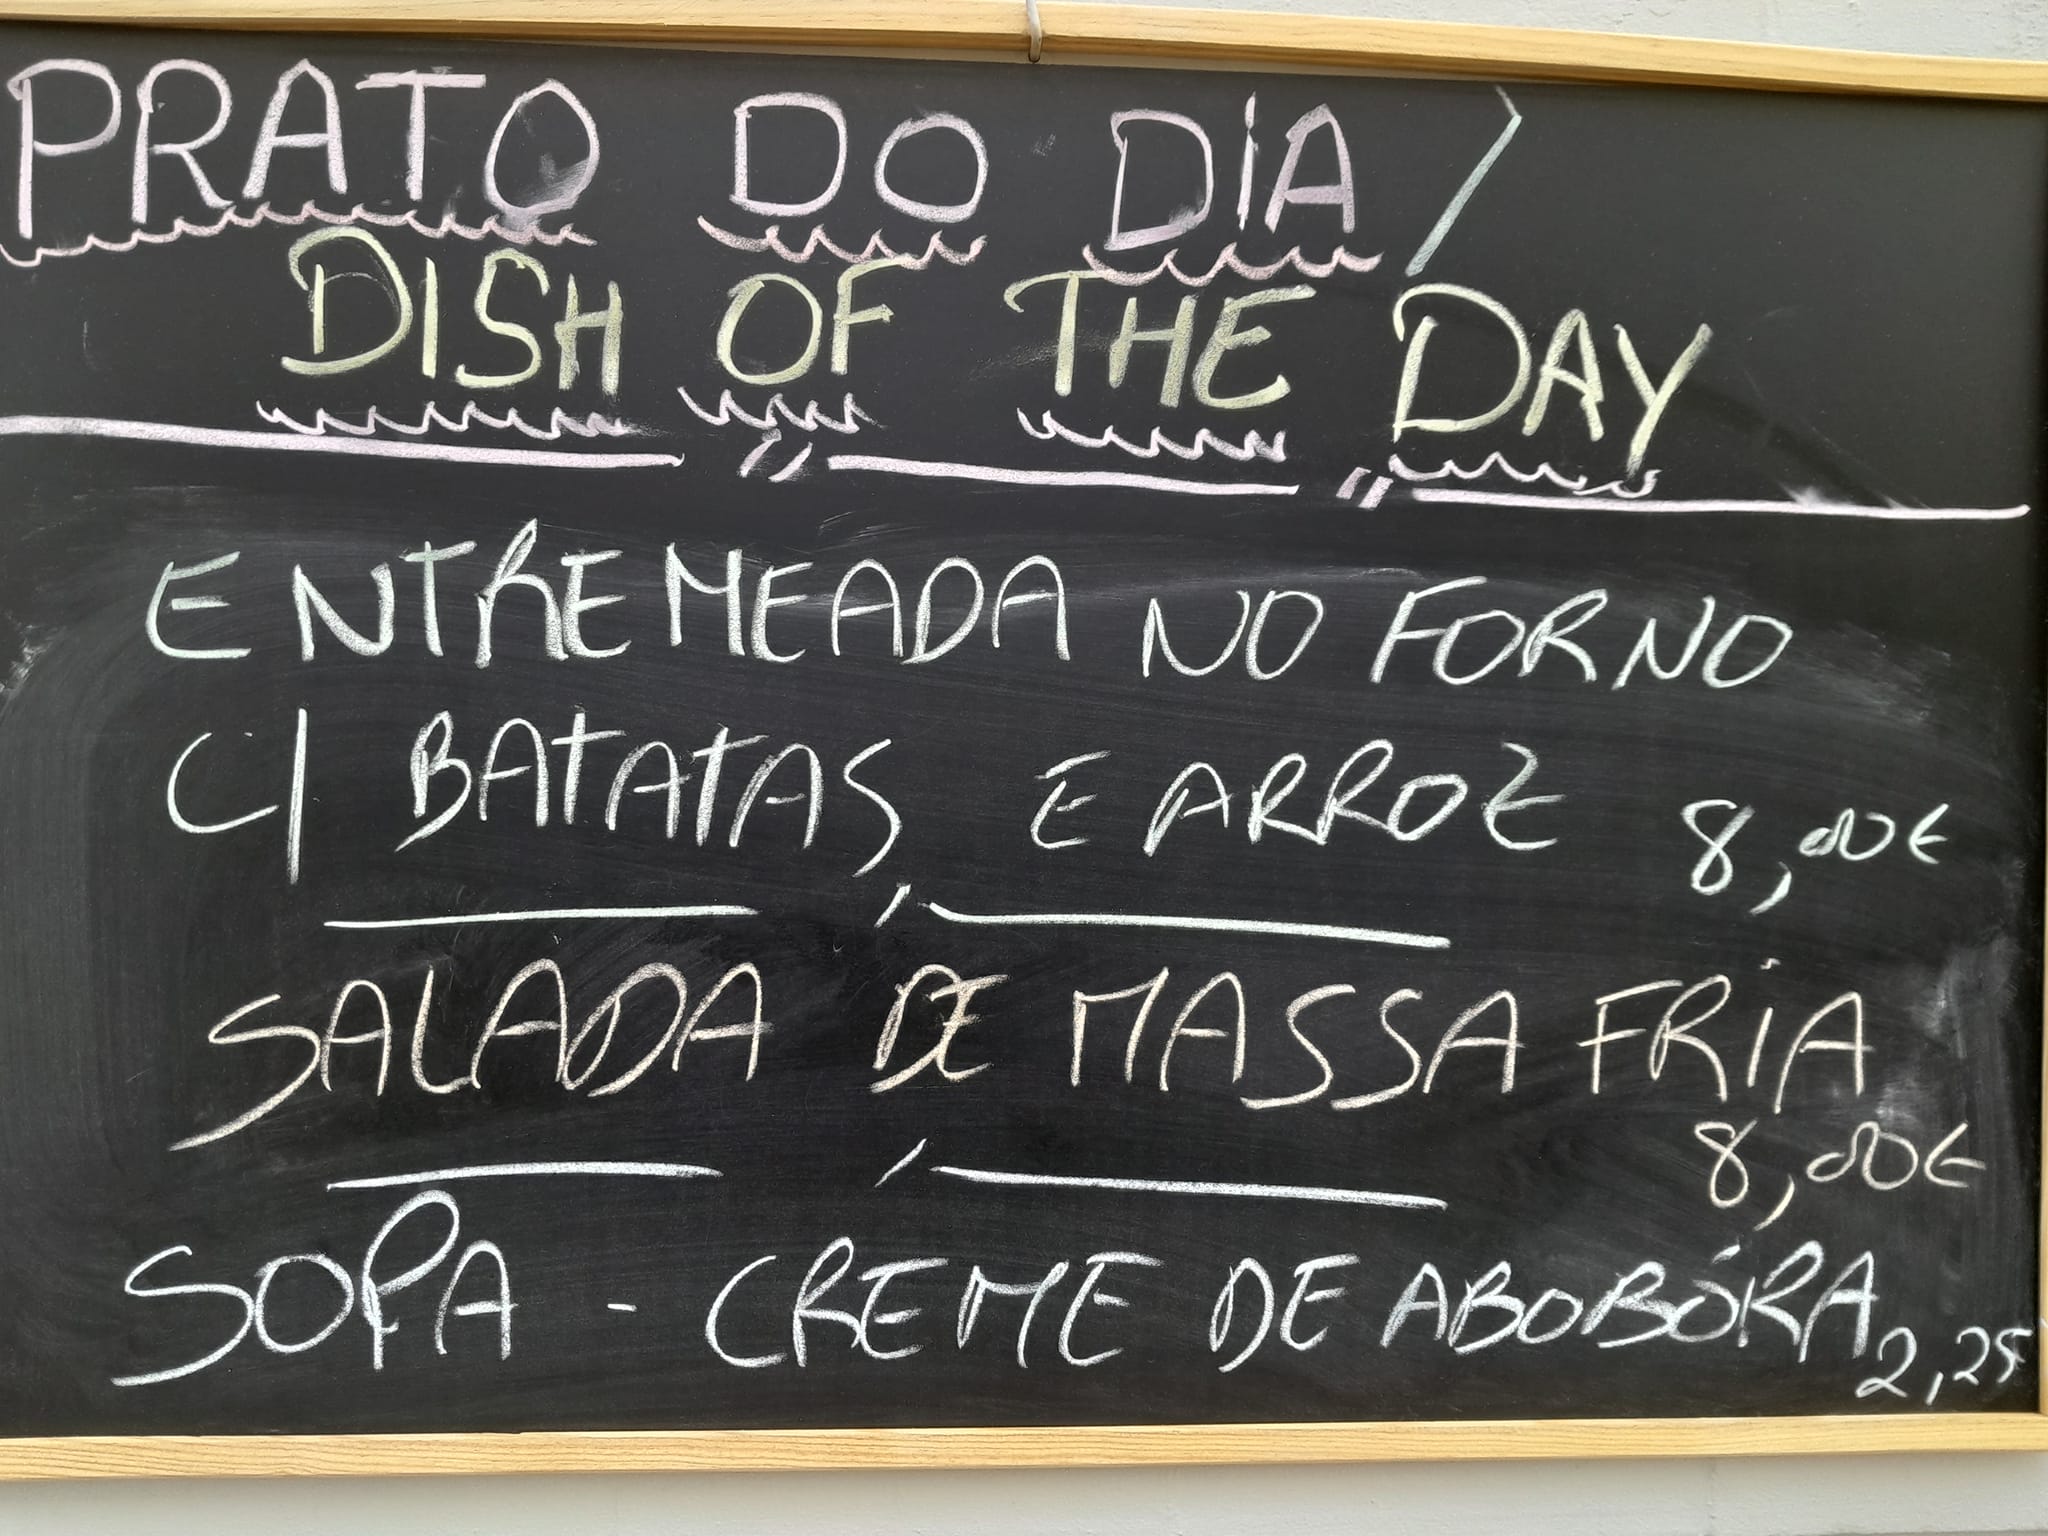 PRATO DO DIA /
DISH OF THE DAY
ENTREMEADA NO FORNO
C/ BATATAS E ARROZ 8,00€
SALADA DE MASSA FRIA
8,00€
SOPA - CREME DE ABOBÓRA 2,25